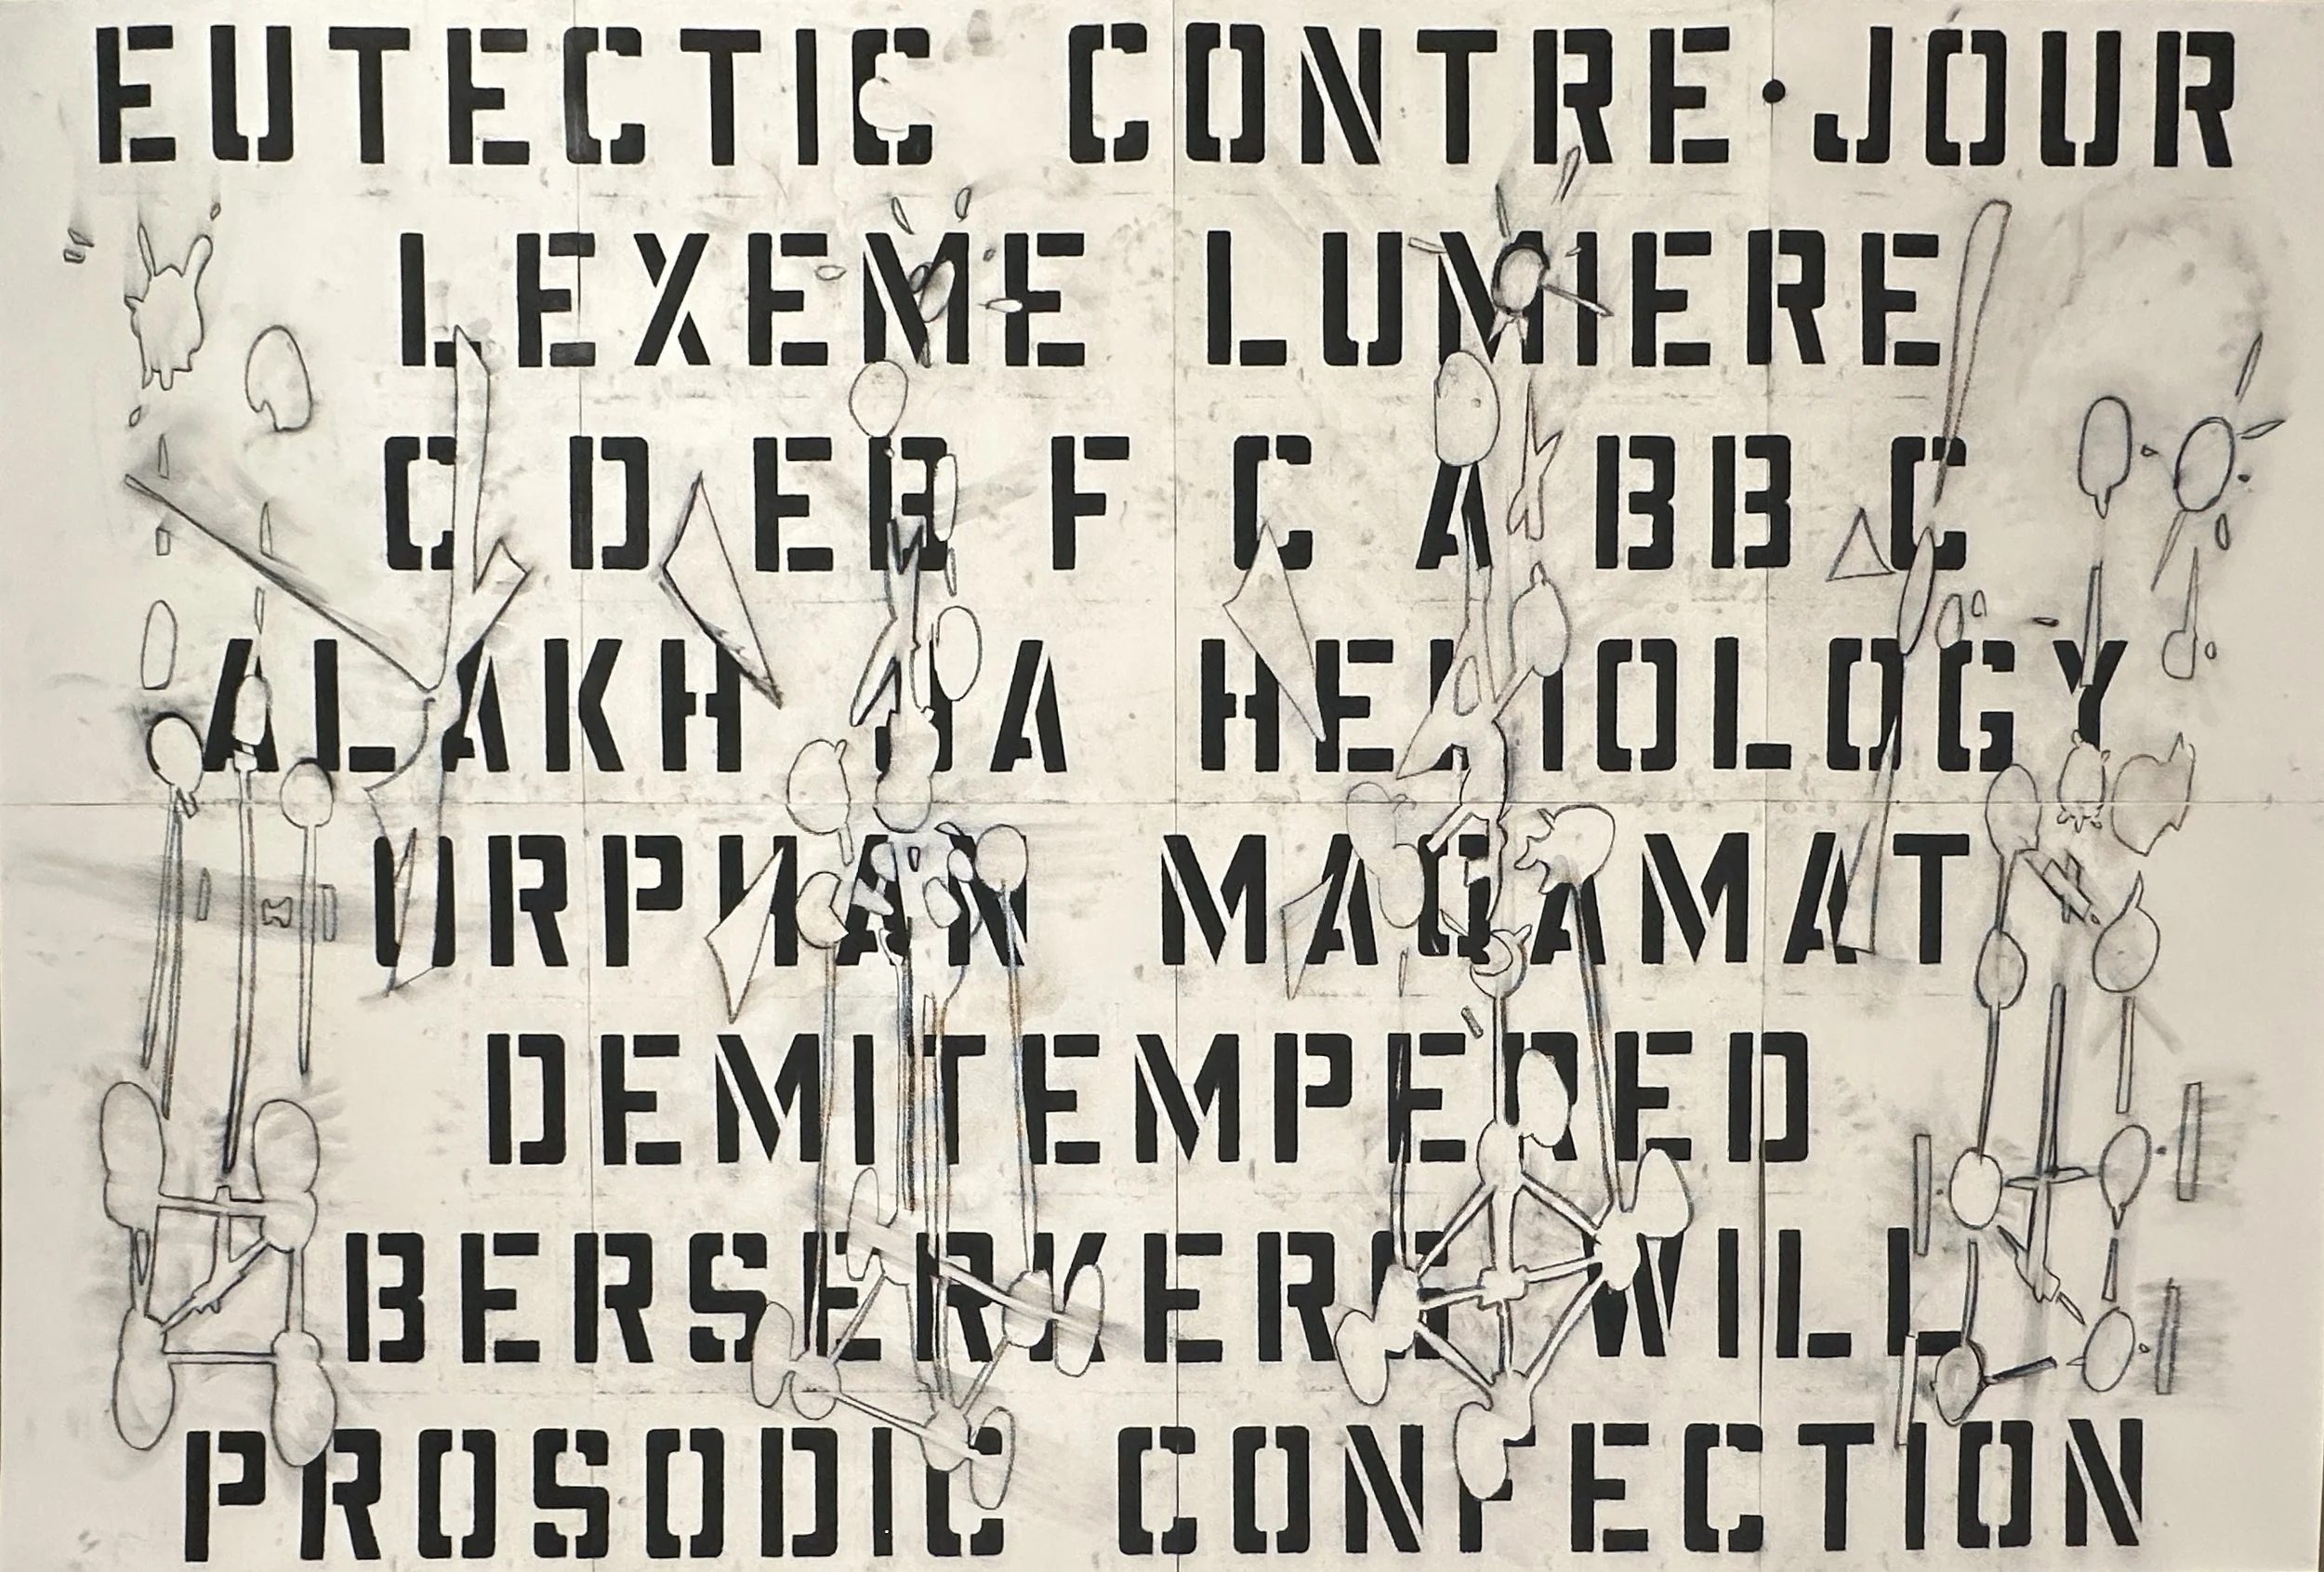 EUTECTIC CONTRE·JOUR
LEXEME LUMIERE
C D EB F C A BB C
ALAKH HEMIOLOGY
ORPHAN MAQAMAT
DEMITEMPERED
BERSERKERS WILL
PROSODIC CONFECTION